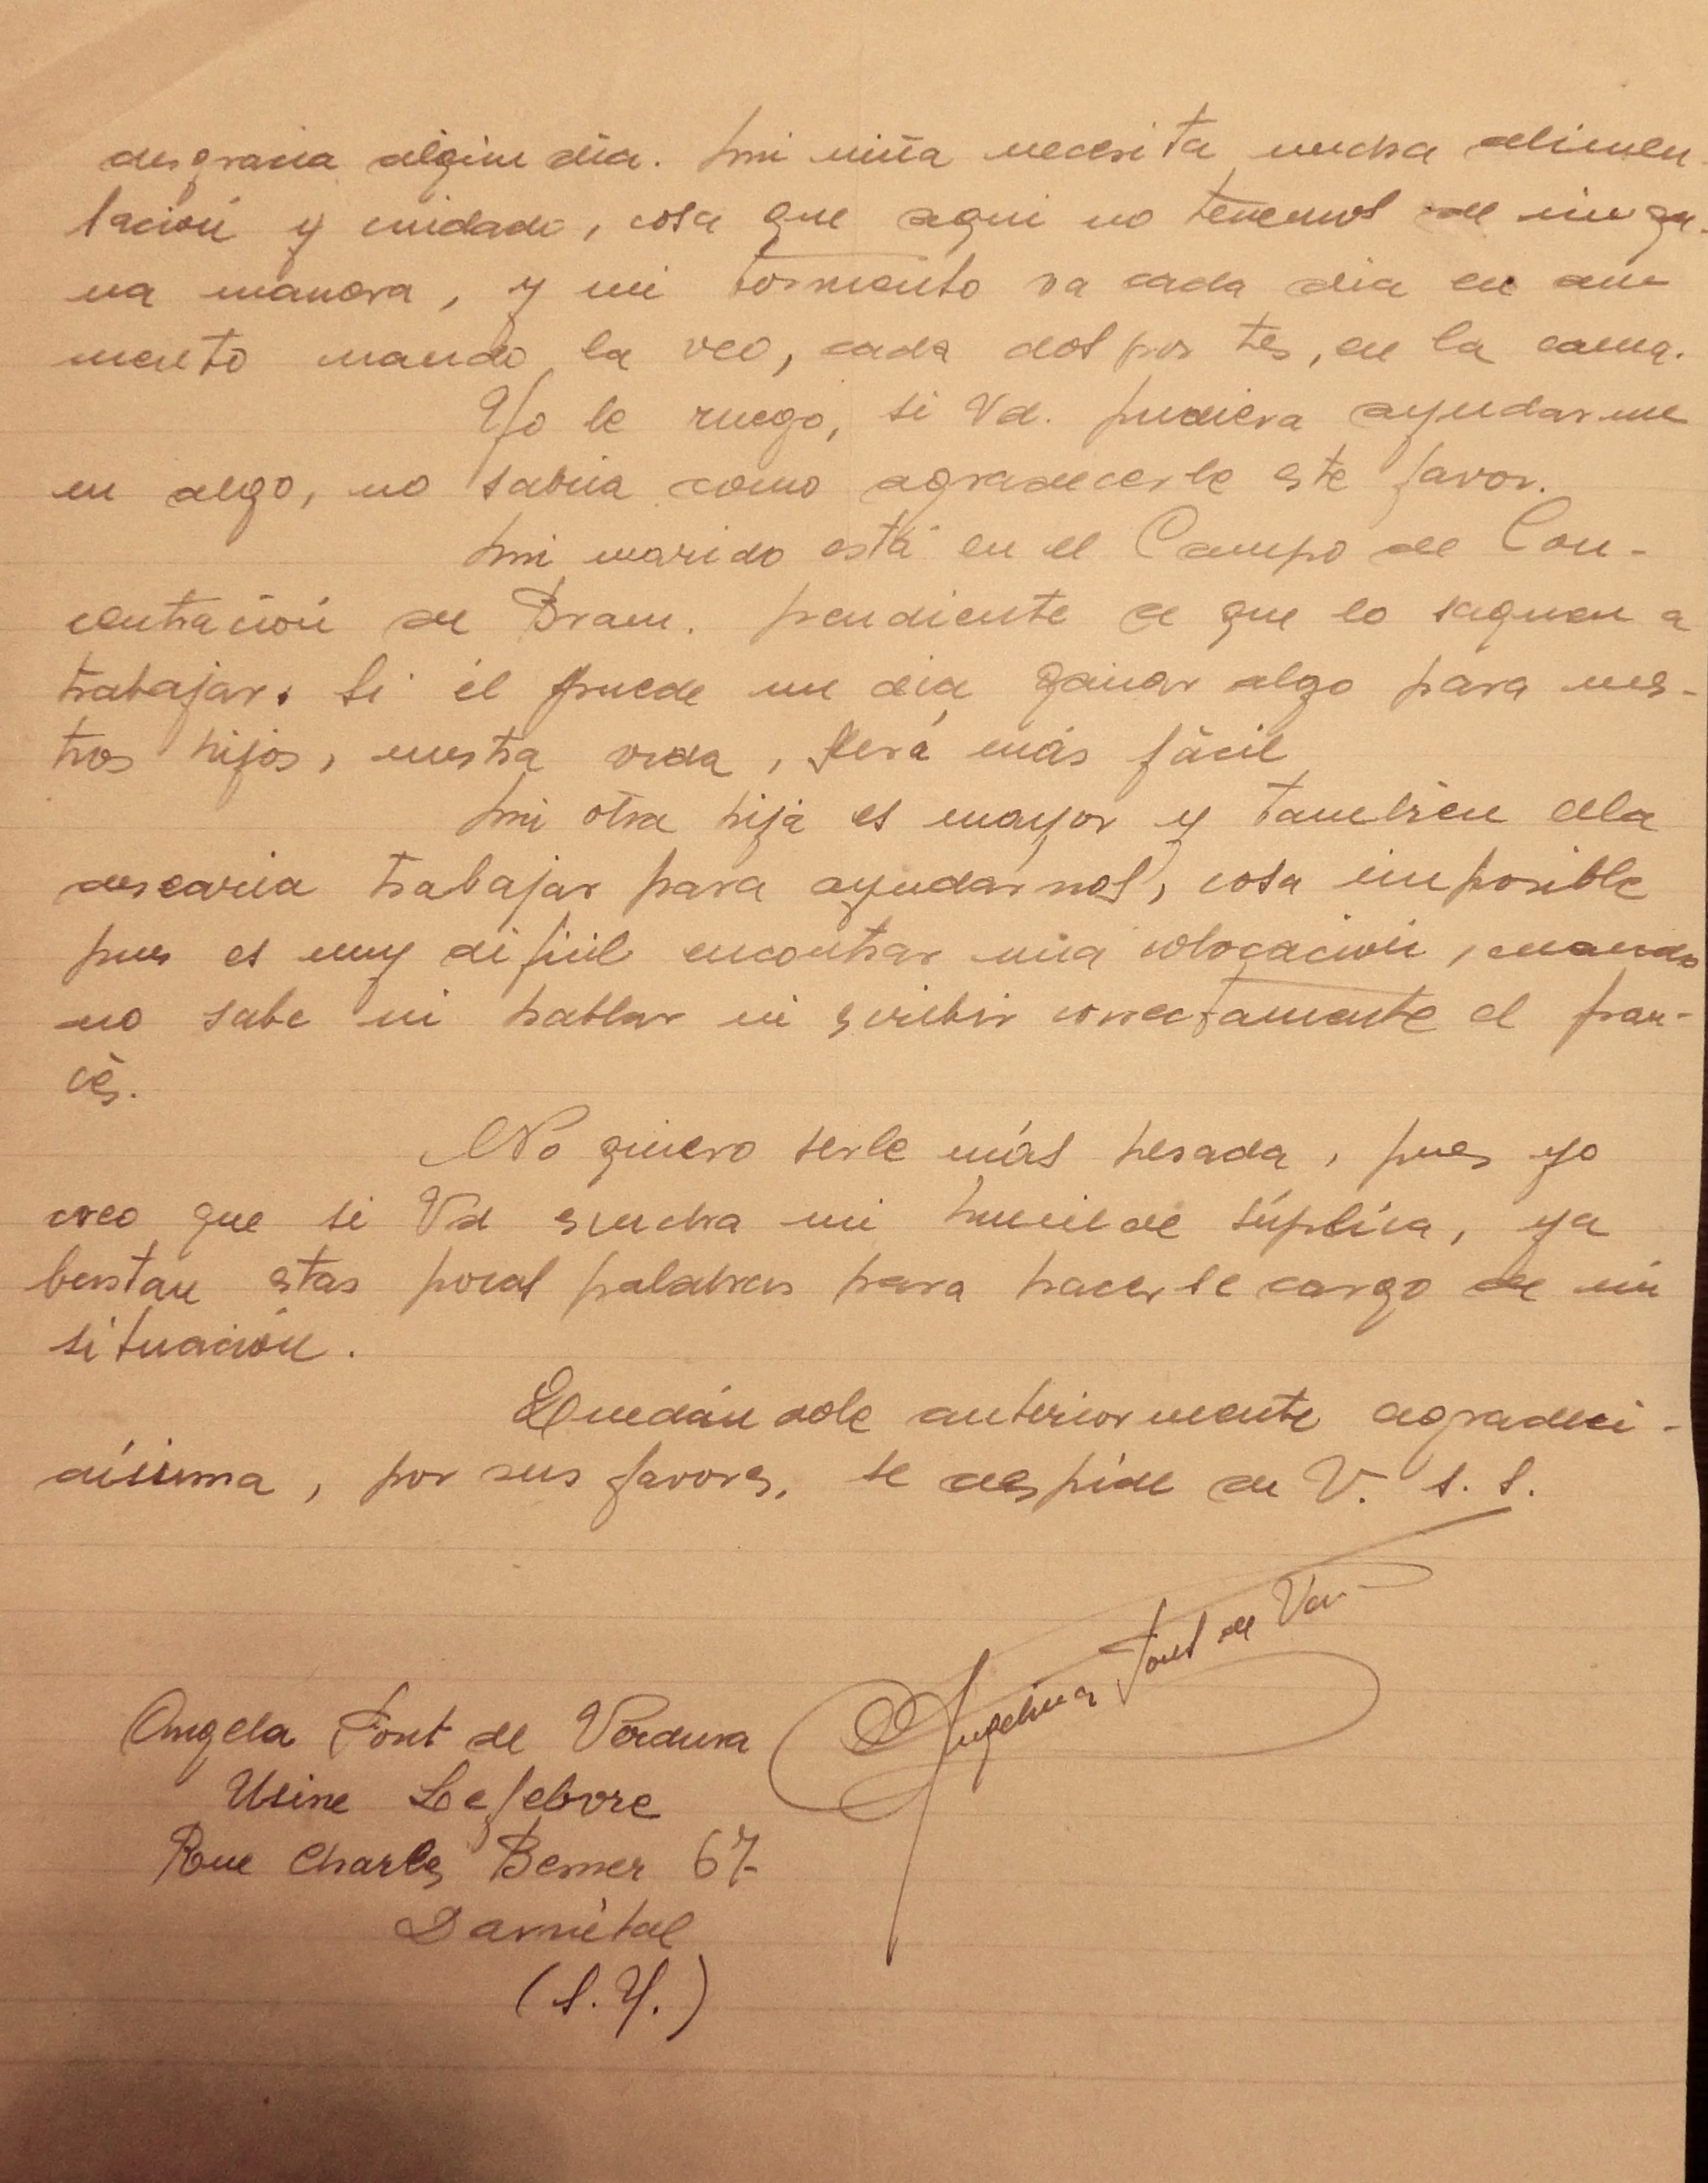 desgracia algún día. Mi niña necesita mucha alimen-
tación y cuidado, cosa que aqui no tenemos de ningu-
na manera, y mi tormento va cada dia en au-
mento cuando la veo, cada dos por tes, en la cama.
Yo le ruego, si Vd. pudiera ayudarme
en algo, no sabria como agradecerle este favor.
Mi marido está en el Campo de Con-
centración de Bram. pendiente de que lo saquen a
trabajar. Si él puede un dia ganar algo para nues-
tros hijos, nuestra vida, será más fácil
Mi otra hija es mayor y tambien ella
desearia trabajar para ayudarnos, cosa imposible
pues es muy difícil encontrar una colocación, cuando
no sabe ni hablar ni escribir correctamente el fran-
cés.
No quiero serle más pesada, pues yo
creo que si Vd escucha mi humilde súplica, ya
bastan estas pocas palabras para hacerse cargo de mi
situación.
Quedándole anteriormente agradeci-
dísima, por sus favores, se despide de V. s. s.
Angelina Font de Ver
Angela Font de Verdura
Usine Lefebvre
Rue Charles Benner 67
Darnétal
(S. Y.)